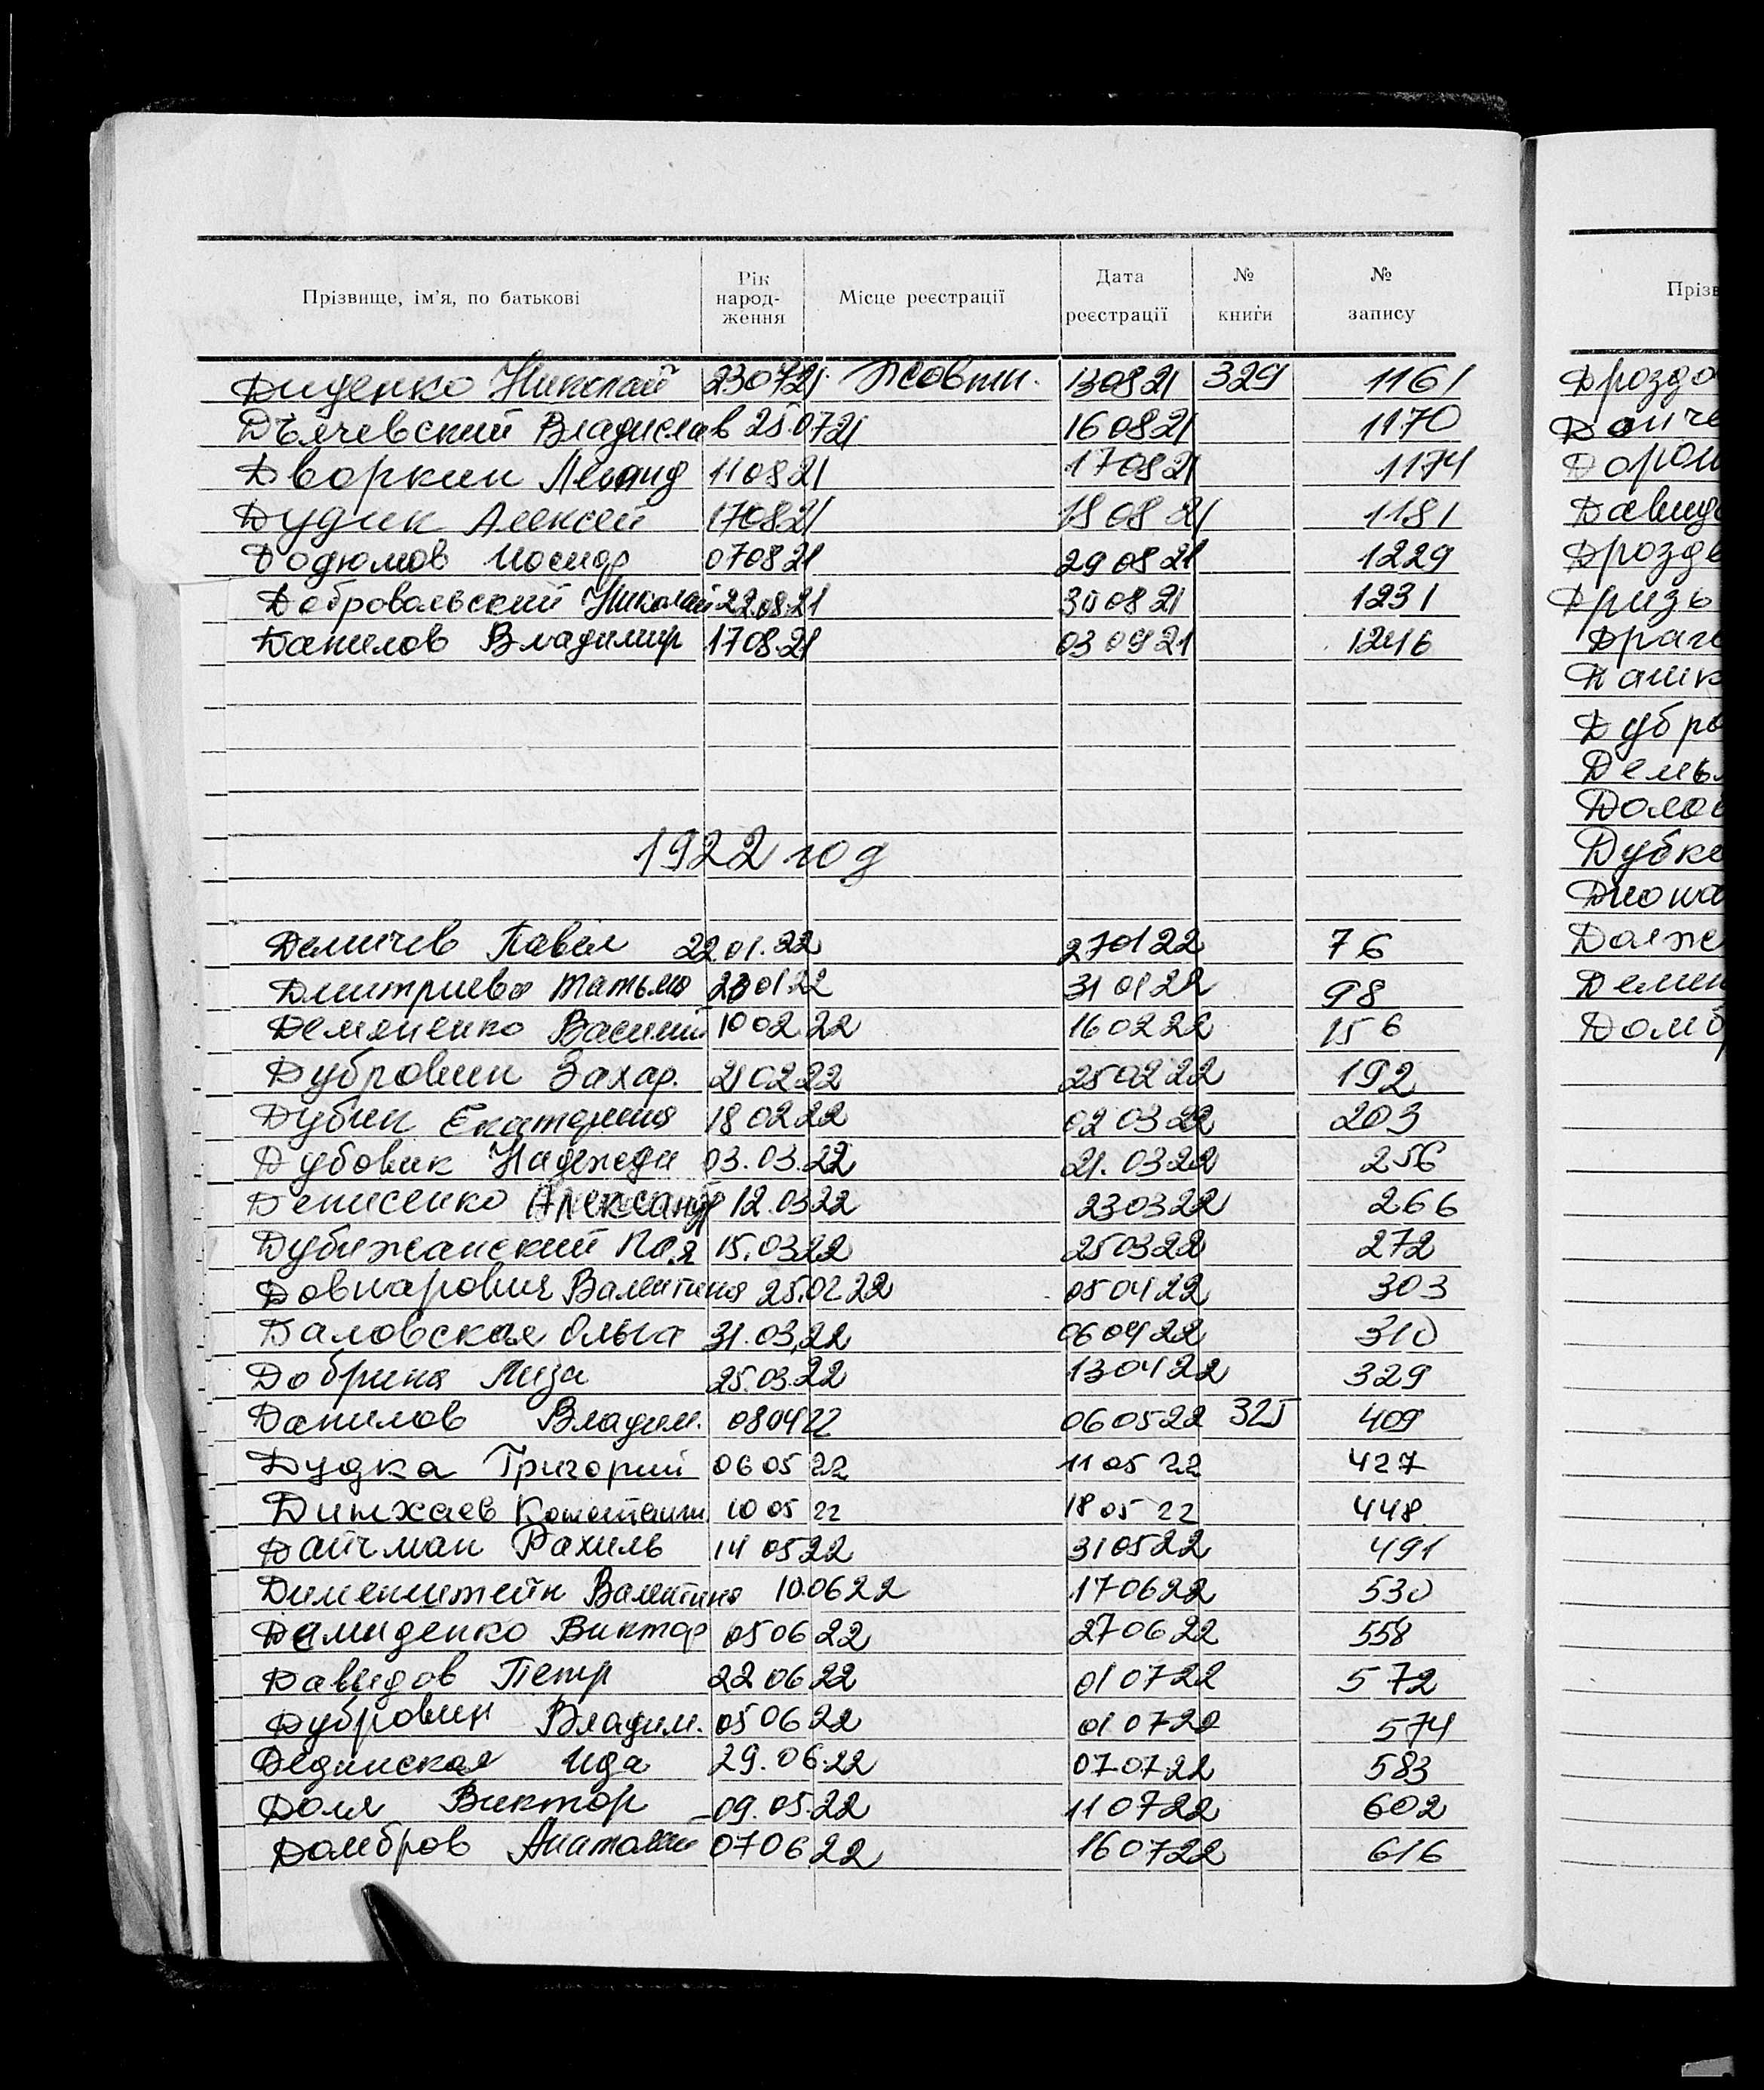 Прізвище, ім'я, по батькові Рік народ- ження Місце реєстрації Дата реєстрації № книги № запису
Диденко Николай 230721 Жовтн. 130821 329 1161
Дъячевский Владислав 25.0721 160821 1170
Дворкин Леонид 110821 170821 1174
Дудик Алексей 170821 180821 1181
Додюмов Иосиф 070821 290821 1229
Добровольский Николай 220821 300821 1231
Данилов Владимир 1708.21 030921 1246
1922 год
Демичев Павел 22.01.22 270122 76
Дмитриева Татьяна 230122 310122 98
Демяненко Василий 100222 160222 156
Дубровин Захар. 210222 250222 192
Дубин Екатерина 180222 020322 203
Дубовик Надежда 03.03.22 21.0322 256
Денисенко Александр 12.0322 230322 266
Дубижанский 15.0322 250322 272
Довнарович Валентина 25.0222 050422 303
Даловская Ольга 31.03.22 060422 310
Добрина Лиза 25.03.22 130422 329
Данилов Владим. 080422 060522 325 409
Дудка Григорий 060522 110522 427
Константин 100522 180522 448
Дайчман Рахиль 140522 310522 491
Дименштейн Валентина 10.0622 170622 530
Демиденко Виктор 050622 270622 558
Давидов Петр 220622 010722 572
Дубровин Владим. 050622 010722 574
Дединская Ида 29.06.22 070722 583
Доля Виктор 09.05.22 110722 602
Домбров Анатолий 070622 160722 616
Прізв
Дроздо